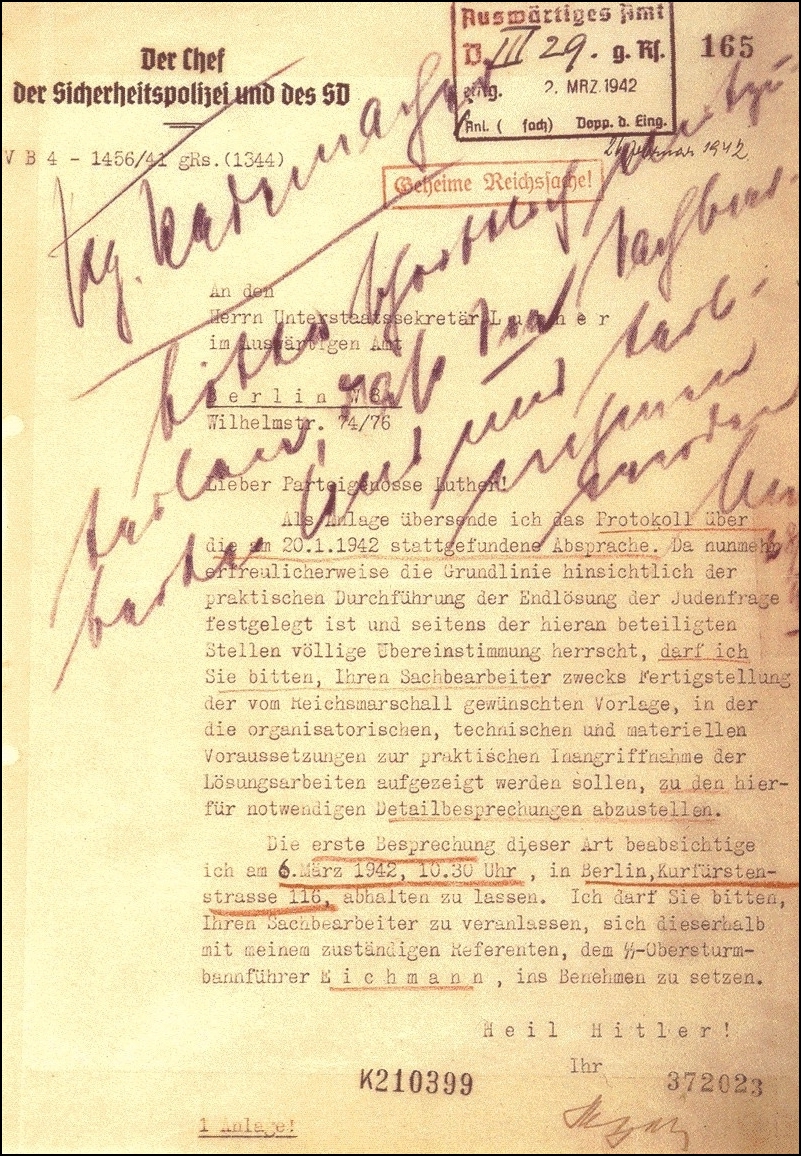 Der Chef
der Sicherheitspolizei und des SD
V B 4 - 1456/41 gRs.(1344)
Auswärtiges Amt
D III 29. g. Rs.
eing. 2. MRZ. 1942
Anl. ( fach) Dopp. d. Eing.
165
Februar 1942
Geheime Reichssache!
Pg. Rademacher
bitte
An den
Herrn Unterstaatssekretär L u t h e r
im Auswärtigen Amt
B e r l i n W 8
Wilhelmstr. 74/76
Lieber Parteigenosse Luther!
Als Anlage übersende ich das Protokoll über
die am 20.1.1942 stattgefundene Absprache. Da nunmehr
erfreulicherweise die Grundlinie hinsichtlich der
praktischen Durchführung der Endlösung der Judenfrage
festgelegt ist und seitens der hieran beteiligten
Stellen völlige Übereinstimmung herrscht, darf ich
Sie bitten, Ihren Sachbearbeiter zwecks Fertigstellung
der vom Reichsmarschall gewünschten Vorlage, in der
die organisatorischen, technischen und materiellen
Voraussetzungen zur praktischen Inangriffnahme der
Lösungsarbeiten aufgezeigt werden sollen, zu den hier-
für notwendigen Detailbesprechungen abzustellen.
Die erste Besprechung dieser Art beabsichtige
ich am 6.März 1942, 10.30 Uhr , in Berlin,Kurfürsten-
strasse 116, abhalten zu lassen. Ich darf Sie bitten,
Ihren Sachbearbeiter zu veranlassen, sich dieserhalb
mit meinem zuständigen Referenten, dem ᛋᛋ-Obersturm-
bannführer E i c h m a n n , ins Benehmen zu setzen.
H e i l  H i t l e r !
Ihr
K210399
372023
1 Anlage!